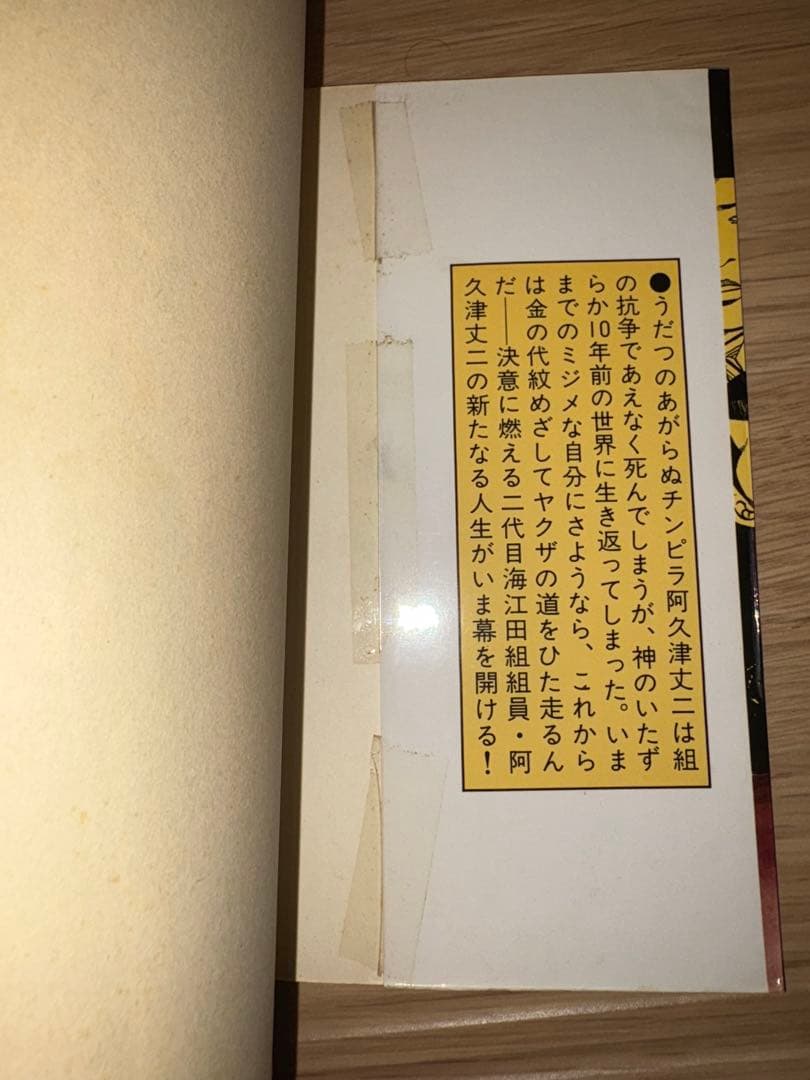 ●うだつのあがらぬチンピラ阿久津丈二は組
の抗争であえなく死んでしまうが、神のいたず
らか10年前の世界に生き返ってしまった。いま
までのミジメな自分にさようなら、これから
は金の代紋めざしてヤクザの道をひた走るん
だ――決意に燃える二代目海江田組組員・阿
久津丈二の新たなる人生がいま幕を開ける！